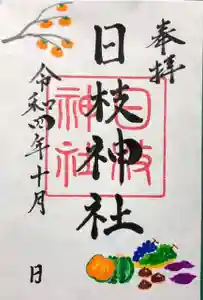 奉拝
日枝神社
日枝神社
令和四年十月 日